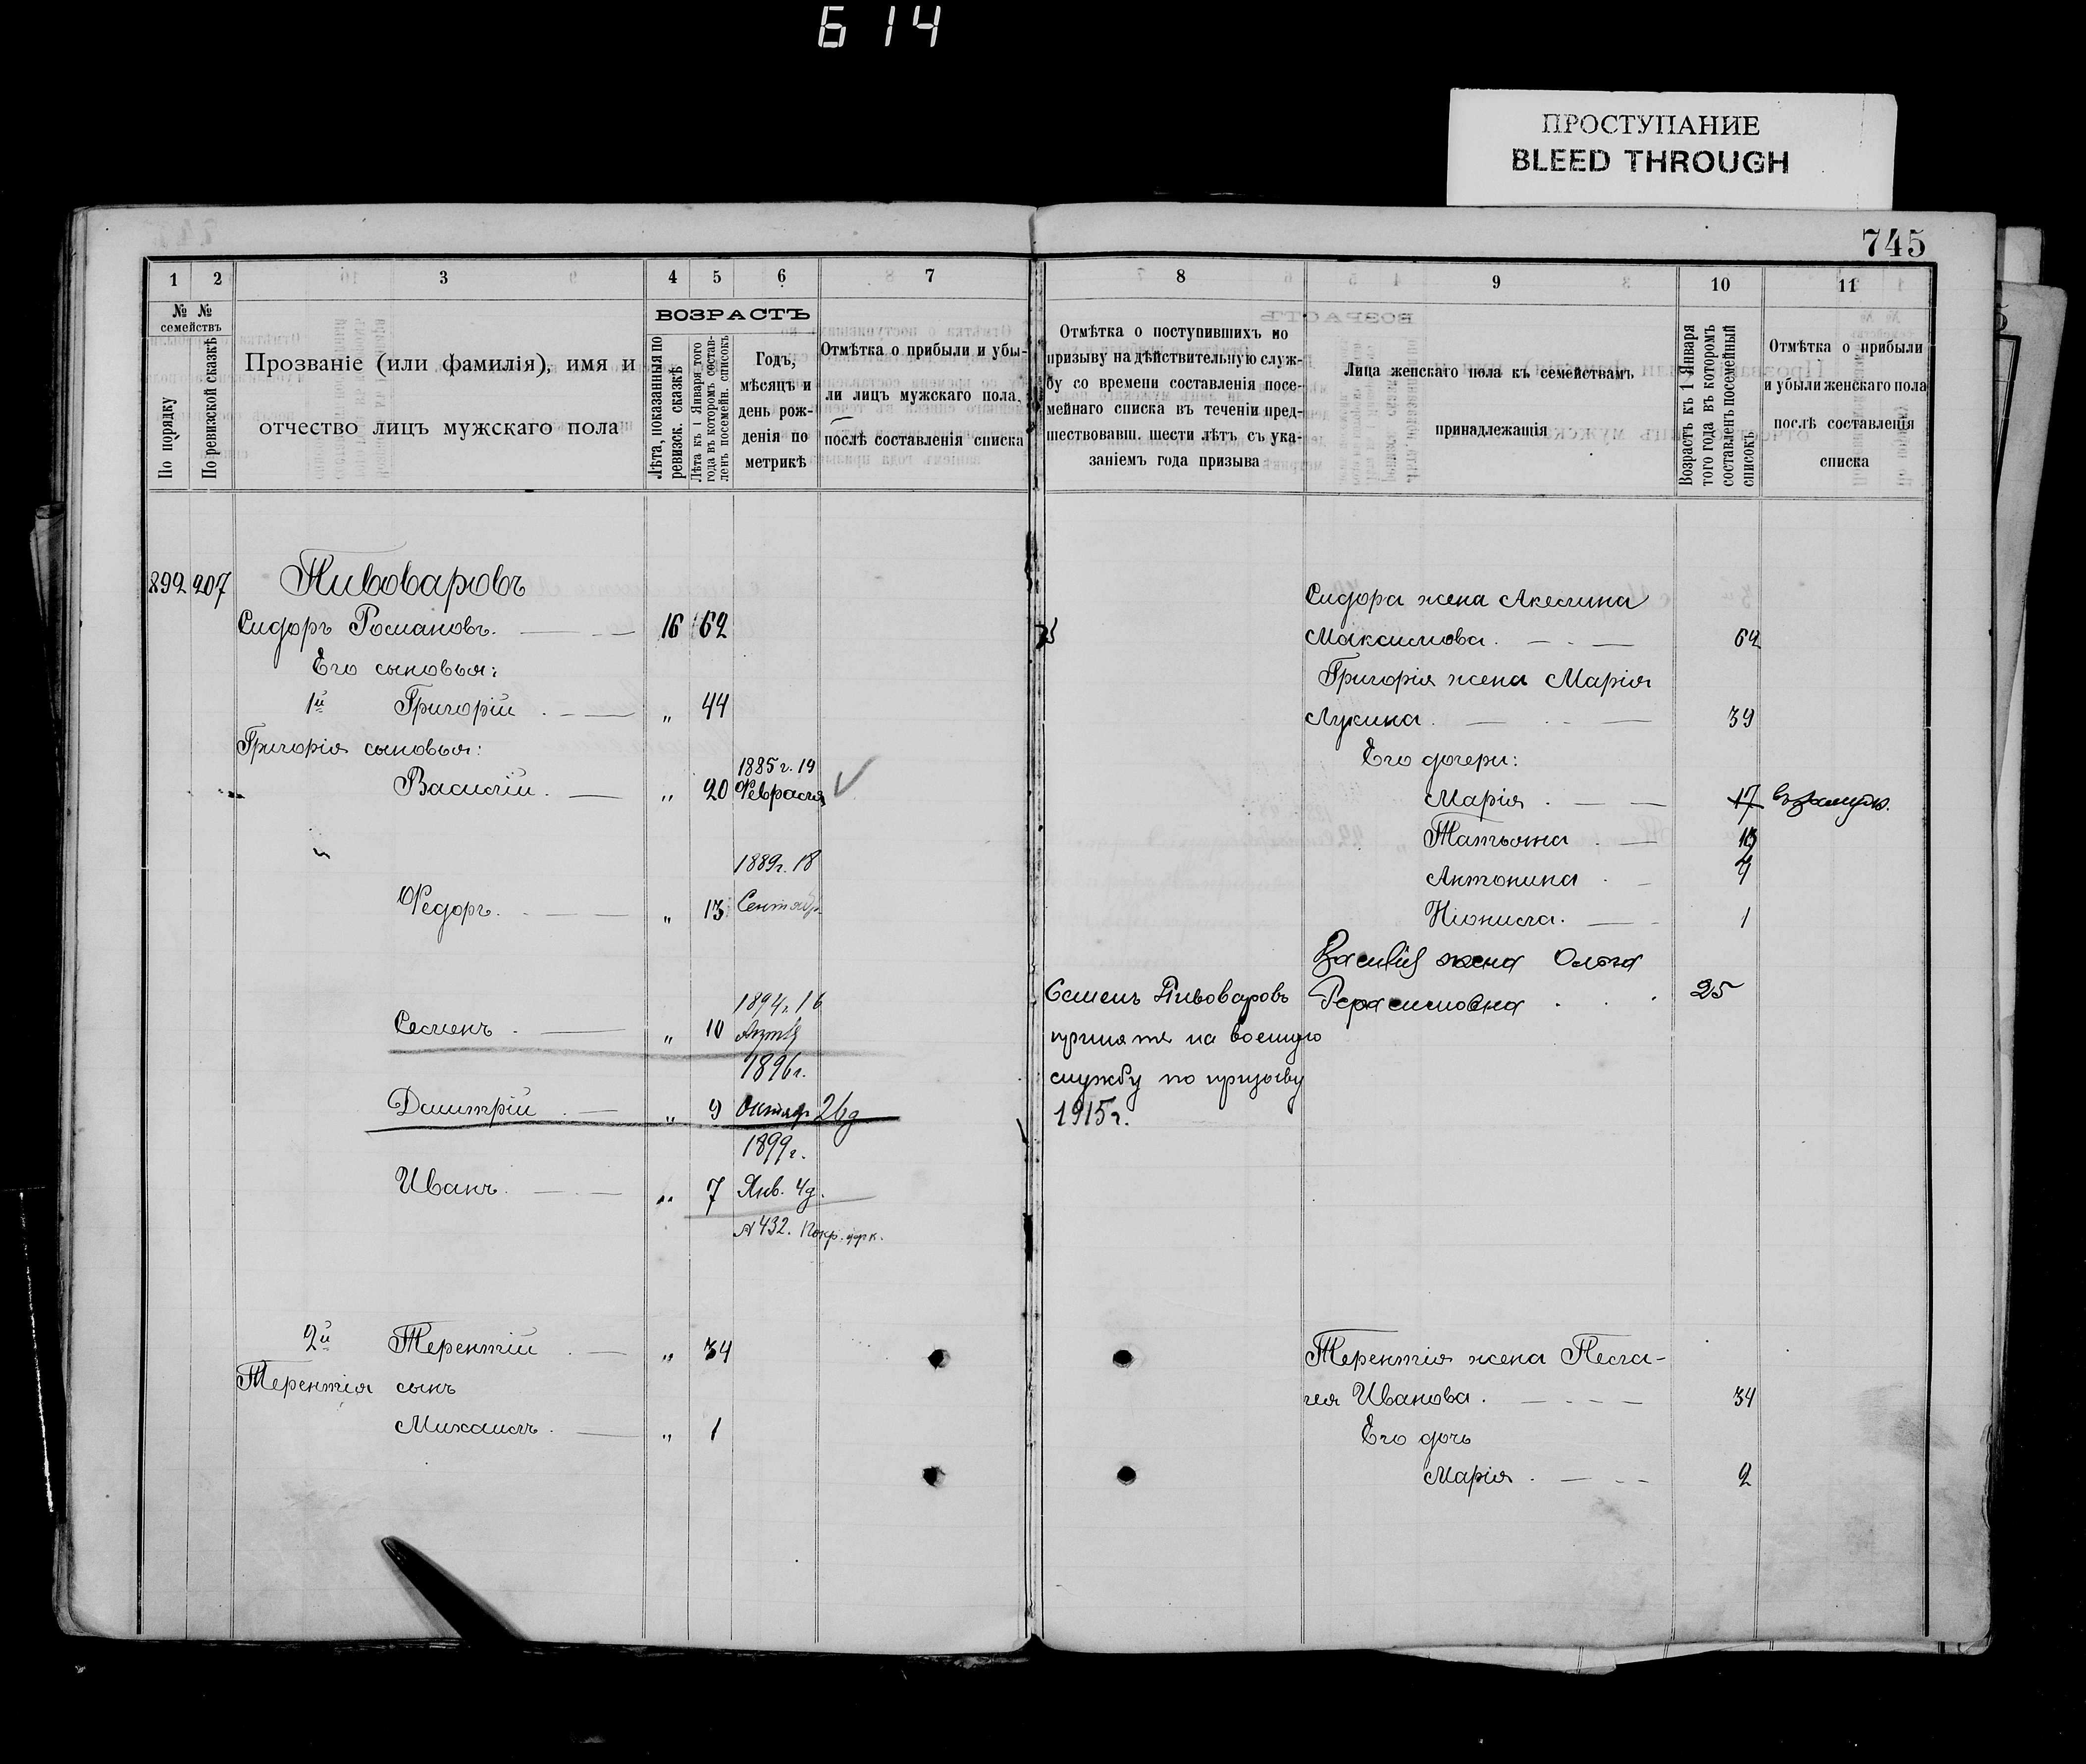 614
ПРОСТУПАНИЕ
BLEED THROUGH
745
1 2 3 4 5 6 7
№ № семействъ
По порядку
По ревизской сказкѣ
Прозваніе (или фамилія), имя и
отчество лицъ мужскаго пола
ВОЗРАСТЪ
Лѣта, показанныя по
ревизск. сказкѣ
Лѣта къ 1 Января того
года въ которомъ состав-
ленъ посемейн. списокъ
Годъ,
мѣсяцъ и
день рож-
денія по
метрикѣ
Отмѣтка о прибыли и убы-
ли лицъ мужскаго пола,
послѣ составленія списка
892 207 Пивоваровъ
Сидоръ Романовъ. 16 62
Его сыновья:
1й Григорій . „ 44
Григорія сыновья:
1885 г. 19
Василій. „ 20 Февраля
1889г. 18
Федоръ. „ 13 Сентяб.
1894г. 16
Семенъ . „ 10
1896г.
Дмитрій . „ 9 Октяр 26д
1899г.
Иванъ. „ 7 Янв. 4д.
№ 432. Покр. церк.
2й Терентій . „ 34
Терентія сынъ
Михаилъ. „ 1
8 9 10 11
Отмѣтка о поступившихъ по
призыву на дѣйствительную служ-
бу со времени составленія посе-
мейнаго списка въ теченіи пред-
шествовавш. шести лѣтъ съ ука-
заніемъ года призыва
Лица женскаго пола къ семействамъ
принадлежащія
Возрастъ къ 1 Января
того года въ которомъ
составленъ посемейный
списокъ
Отмѣтка о прибыли
и убыли женскаго пола
послѣ составленія
списка
Сидора жена Акелина
Максимова. 62
Григорія жена Марія
Лукина. 39
Его дочери:
Марія . 17 въ замуж.
Татьяна .
Антонина .
Ніонила. 1
Василія жена Ольга
Герасимовна . . . 25
Семенъ Пивоваровъ
принятъ на военную
службу по призыву
1915г.
Терентія жена Пела-
гея Иванова . 34
Его дочь
Марія . 2